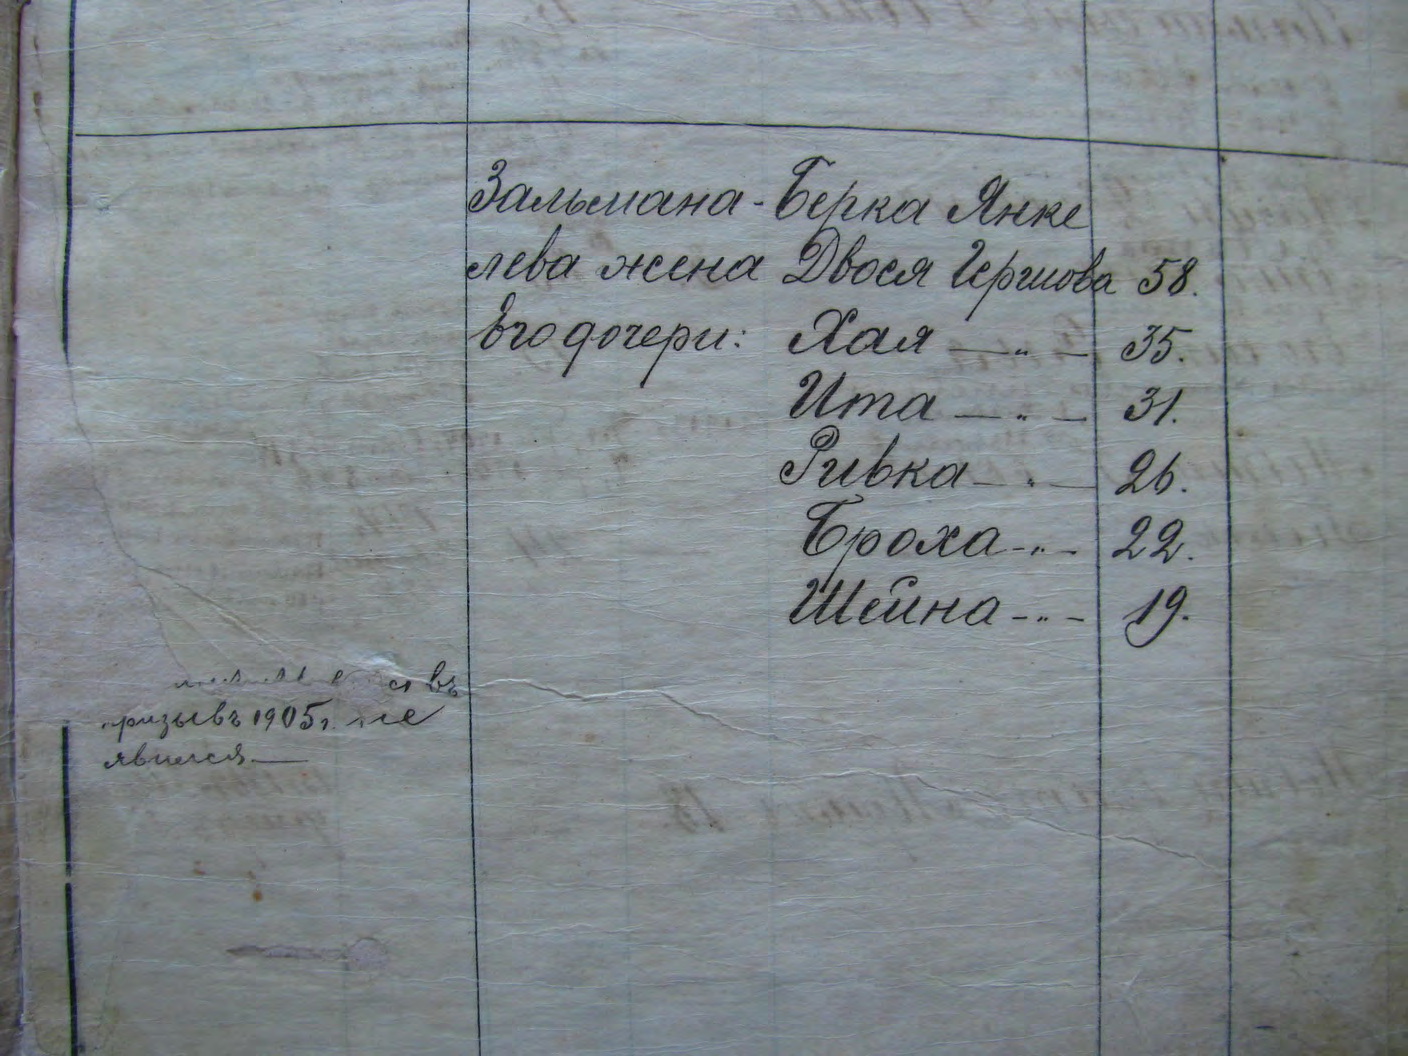 Зальмана-Берка Янке
лева жена Двося Гершова 58.
Его дочери: Хая — „ — 35.
Ита — „ — 31.
Ривка — „ — 26.
Броха - „ - 22.
Шейна - „ - 19.
въ
призывъ 1905 г. не
явился —